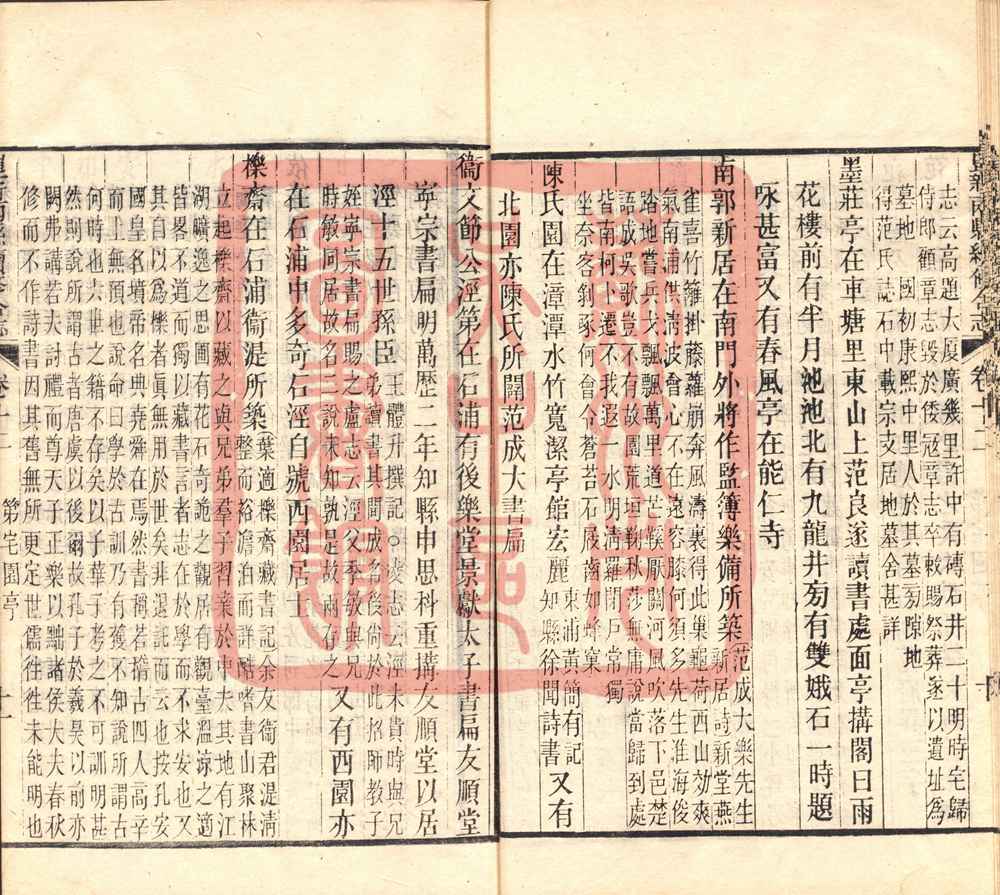 志云高題大厦廣幾里許中有磚石井二十明時宅歸
侍郎顧章志毀於倭寇章志卒敕賜祭葬遂以遺址爲
墓地 國初康熙中里人於其墓旁隙地
得范氏誌石中載宗支居地墓舍甚詳
墨莊亭在車塘里東山上范良遂讀書處面亭搆閣曰雨
花樓前有半月池池北有九龍井旁有雙娥石一時題
咏甚富又有春風亭在能仁寺
南郭新居在南門外將作監簿樂備所築范成大樂先生
新居詩新堂燕
雀喜竹籬掛藤蘿崩奔風濤裏得此巢龜荷西山効爽
氣南浦供清波會心不在遠容膝何須多先生淮海俊
踏地嘗兵戈飄飄萬里道芒鞵厭關河風吹落下邑楚
語成吳歌豈不有故園荒垣靭秋莎無庸說當歸到處
皆南柯小遷不我遐一水明清羅雨後閉戶常獨
坐奈客剝啄何會令蒼苔石屐齒如蜂窠
陳氏園在漳潭水竹寬潔亭館宏麗東浦黄簡有記
知縣徐聞詩書又有
北園亦陳氏所闢范成大書扁
衞文節公涇第在石浦有後樂堂景獻太子書扁友順堂
寧宗書扁明萬歷二年知縣申思科重搆友順堂以居
涇十五世孫臣王體升撰記○凌志云涇未貴時與兄
弟讀書其間成名後尚於此招師教子
姪寧宗書扁賜之盧志云涇父季敏與兄
時敏同居故名二說未知孰是故兩存之又有西園亦
在石浦中多奇石涇自號西園居士
櫟齋在石浦衞湜所築葉適櫟齋藏書記余友衞君湜清
整而裕澹泊而詳酷嗜書山聚林
立起櫟齋以藏之與兄弟羣子習業於中夫其地有江
湖曠逸之思圃有花石奇詭之觀居有觀臺溫凉之適
皆畧不道而獨以藏書言者志在於學而不求安也又
其自以爲櫟者眞無用於世矣非退託而云也按孔安
國三皇名墳帝名典堯舜在焉然書稱若稽古四人高辛
而上無預也說命曰學於古訓乃有獲不知說所謂古
何時也六世之籍不存矣以子華子考之不可訓明甚
然則說所謂古者唐虞以後爾故孔子於羲昊以前亦
闕弗講若夫討禮而尊天子正樂以黜諸侯大夫春秋
修而不作詩書因其舊無所更定世儒徃徃未能明也
卷十二
卷十二 第宅園亭
十
十一